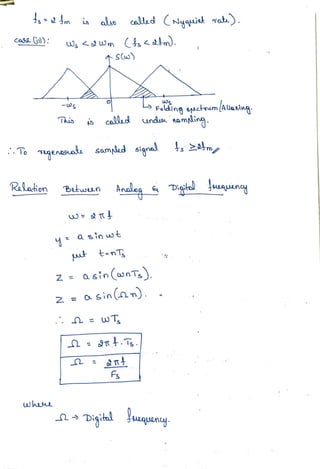 fs = 2 fm is also called (Nyquist rate).
case (iii): ωs < 2 ωm (fs < 2fm).
S(ω)
-ωs 0 ωs
↳ Folding spectrum/Aliasing.
This is called under sampling.
∴ To regenerate sampled signal fs ≥ 2fm
Relation Between Analog & Digital frequency
ω = 2πf
y = a sin ωt
put t=nTs
z = a sin(ωnTs).
z = a sin(Ωn).
∴ Ω = ωTs
Ω = 2πf.Ts.
Ω = 2πf / Fs
where
Ω → Digital frequency.